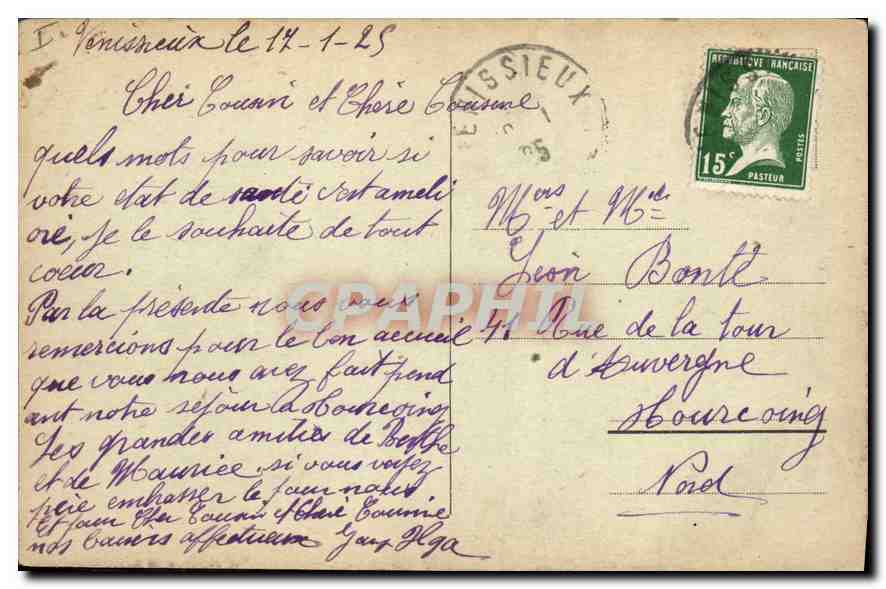 I
Venissieux le 17-1-25
Cher Cousin et Chère Cousine
quels mots pour savoir si
votre etat de santé s'est ameli
oré, je le souhaite de tout
coeur.
Par la présente nous vous
remercions pour le bon accueil
que vous nous avez fait pend
ant notre séjour à Tourcoing
Les grandes amitiés de Berthe
et de Maurice. si vous voyez
embrasser le pour nous
Et pour Cher Cousin et Chère Cousine
nos baisers affectueux
VENISSIEUX
25
REPUBLIQUE FRANÇAISE
POSTES
15c
PASTEUR
Mrs et Mde
Léon Bonte
41 Rue de la tour
d'Auvergne
Tourcoing
Nord
CPAPHIL